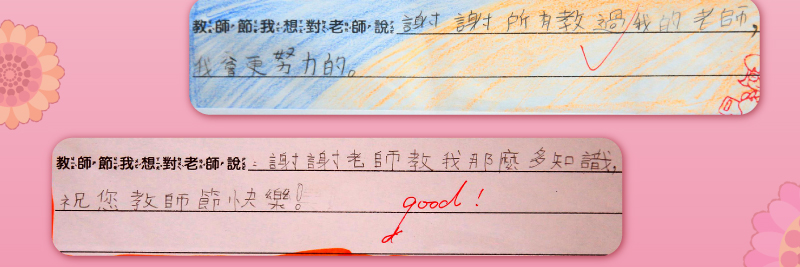 教師節我想對老師說：謝謝所有教過我的老師，
我會更努力的。
教師節我想對老師說：謝謝老師教我那麼多知識，
祝您教師節快樂！
good！